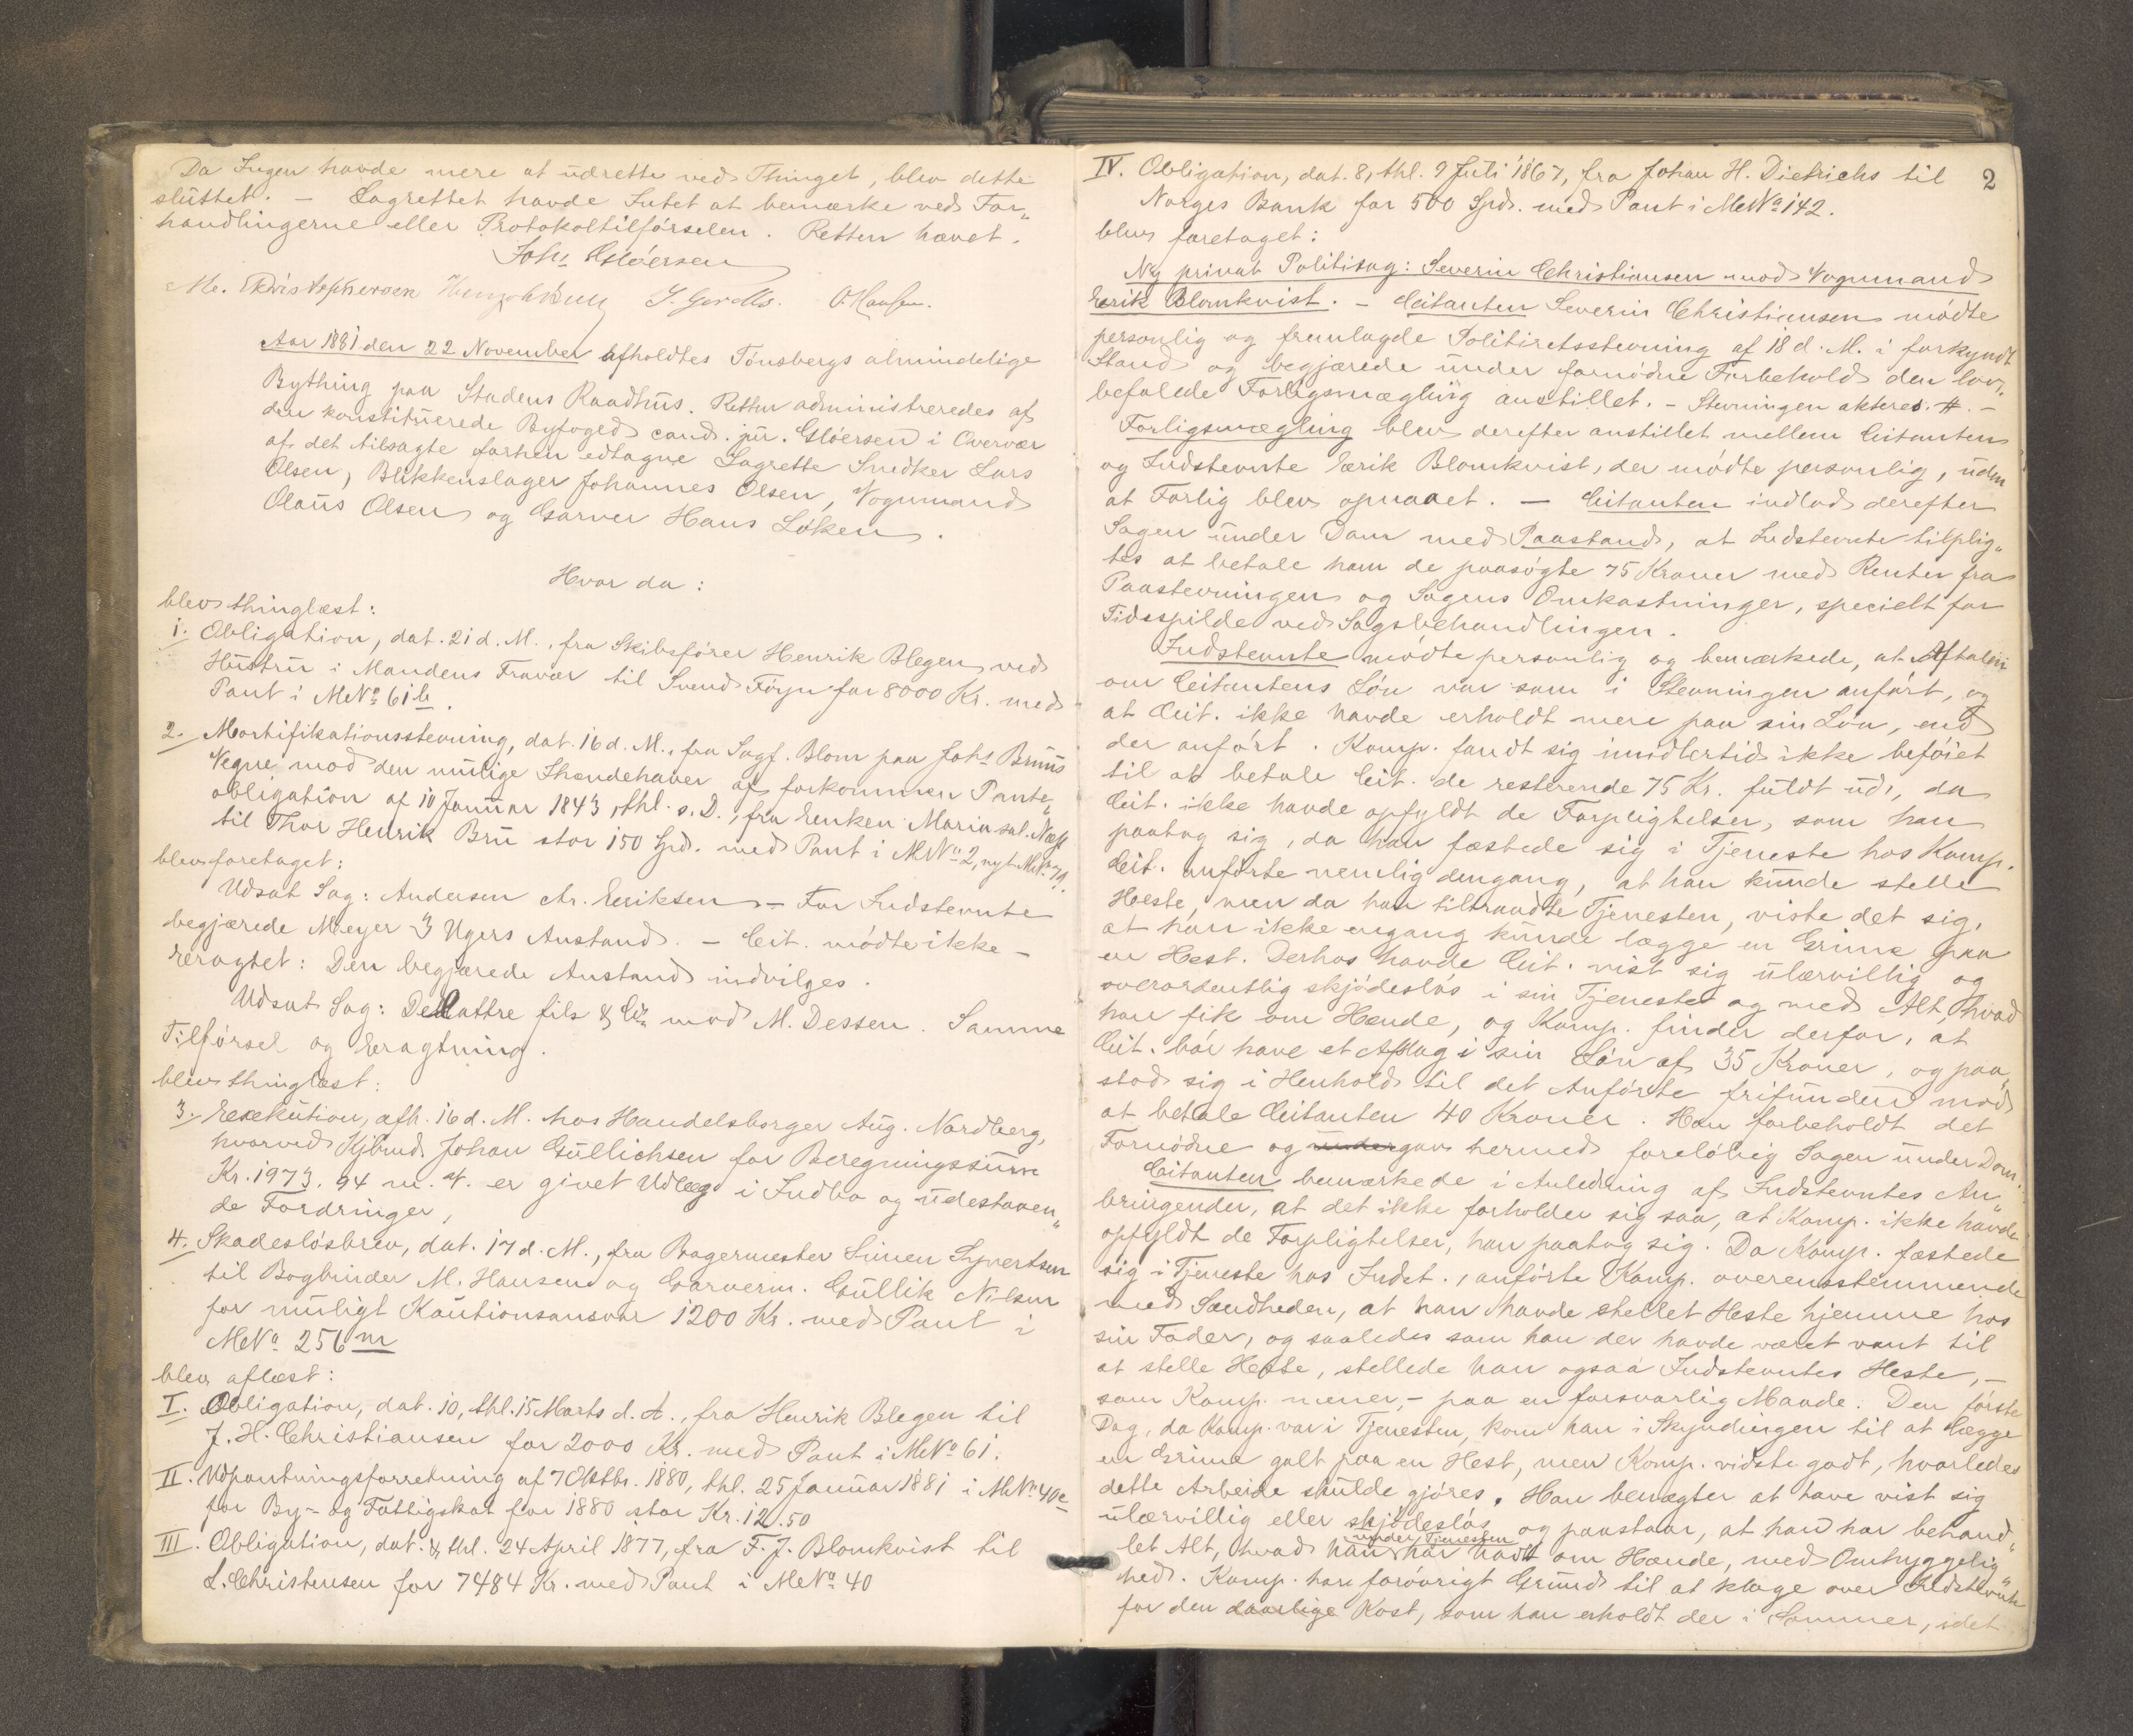 Da Ingen havde mere at udrette ved Thinget, blev dette
sluttet. — Lagrettet havde Intet at bemærke ved For„
handlingerne eller Protokoltilførselen. Retten hævet.
Johs Gløersen
M. Christophersen O. Hansen.
Aar 1881 den 22 November afholdtes Tønsbergs almindelige
Bything paa Stadens Raadhus. Retten administreredes af
den konstituerede Byfoged cand. jur. Gløersen i Overvær
af det tilsagte forhen edtagne Lagrette Snedker Lars
Olsen, Blikkenslager Johannes Olsen, Vognmand
Olaus Olsen og Garver Hans Løken.
Hvor da:
blev thinglæst:
1. Obligation, dat. 21 d. M., fra Skibsfører Henrik Blegen ved
Hustru i Mandens Fravær til Svend Føyn for 8000 Kr. med
Pant i MNo 61b.
2. Mortifikationsstevning, dat. 16 d. M., fra Sagf. Blom paa Johs Bruus
Vegne mod den mulige Ihændehaver af forkommen Pante„
obligation af 10 Januar 1843, thl. s. D., fra Enken Maria sal. Næss
til Thor Henrik Bru stor 150 Spd. med Pant i MNo 2, nyt MNo 79.
blev foretaget:
Udsat Sag: Andersen ctr. Eriksen. — For Indstevnte
begjærede Meyer 3 Ugers Anstand. — Cit. mødte ikke —
Eragtet: Den begjærede Anstand indvilges.
Udsat Sag: Delattre fils & Co mod M. Dessen. Samme
Tilførsel og Eragtning.
blev thinglæst:
3. Exekution, afh. 16 d. M. hos Handelsborger Aug. Nordberg,
hvorved Kjbmd Johan Gullichsen for Beregningssum
Kr. 1973. 94 m. v. er givet Udlæg i Indbo og udestaaen„
de Fordringer,
4. Skadesløsbrev, dat. 17 d. M., fra Bagermester Simen Syvertsen
til Bogbinder M. Hansen og Garverm. Gullik Nilsen
for muligt Kautionsansvar 1200 Kr. med Pant i
MNo 256m
blev aflæst:
I. Obligation, dat. 10, thl. 15 Marts d. A., fra Henrik Blegen til
J. H. Christiansen for 2000 Kr. med Pant i MNo 61.
II. Udpantningsforretning af 7 Oktbr. 1880, thl. 25 Januar 1881 i MNo 40e
for By- og Fattigskat for 1880 stor Kr. 12.50
III. Obligation, dat. & thl. 24 April 1877, fra F. J. Blomkvist til
L. Christensen for 7484 Kr. med Pant i MNo 40
2
IV. Obligation, dat. 8, thl. 9 Juli 1867, fra Johan H. Dietrichs til
Norges Bank for 500 Spd. med Pant i MNo 142.
blev foretaget:
Ny privat Politisag: Severin Christiansen mod Vognmand
Erik Blomkvist. — Citanten Severin Christiansen mødte
personlig og fremlagde Politiretsstevning af 18 d. M. i forkyndt
Stand og begjærede under fornødne Forbehold den lov„
befalede Forligsmægling anstillet. — Stevningen akteres. #. —
Forligsmægling blev derefter anstillet mellem Citanten
og Indstevnte Erik Blomkvist, der mødte personlig, uden
at Forlig blev opnaaet. — Citanten indlod derefter
Sagen under Dom med Paastand, at Indstevnte tilplig„
tes at betale ham de paasøgte 75 Kroner med Renter fra
Paastevningen og Sagens Omkostninger, specielt for
Tidsspilde ved Sagsbehandlingen.
Indstevnte mødte personlig og bemærkede, at Aftalen
om Citantens Løn var som i Stevningen anført, og
at Cit. ikke havde erholdt mere paa sin Løn, end
der anført. Komp. fandt sig imidlertid ikke beføiet
til at betale Cit. de resterende 75 Kr. fuldt ud, da
Cit. ikke havde opfyldt de Forpligtelser, som han
paatog sig, da han fæstede sig i Tjeneste hos Komp.
Cit. anførte nemlig dengang, at han kunde stelle
Heste, men da han tiltraadte Tjenesten, viste det sig,
at han ikke engang kunde lægge en Grime paa
en Hest. Derhos havde Cit. vist sig ulærvillig og
overordentlig skjødesløs i sin Tjeneste og med Alt, hvad
han fik om Hænde, og Komp. finder derfor, at
Cit. bør have et Afslag i sin Løn af 35 Kroner, og paa„
stod sig i Henhold til det Anførte frifunden mod
at betale Citanten 40 Kroner. Han forbeholdt det
Fornødne og under gav hermed foreløbig Sagen under Dom.
Citanten bemærkede i Anledning af Indstevntes An„
bringender, at det ikke forholder sig saa, at Komp. ikke havde
opfyldt de Forpligtelser, han paatog sig. Da Komp. fæstede
sig i Tjeneste hos Indst., anførte Komp. overensstemmende
med Sandheden, at han havde stellet Heste hjemme hos
sin Fader, og saaledes som han der havde været vant til
at stelle Heste, stellede han ogsaa Indstevntes Heste, —
som Komp. mener, — paa en forsvarlig Maade. Den første
Dag, da Komp. var i Tjenesten, kom han i Skyndingen til at lægge
en Grime galt paa en Hest, men Komp. vidste godt, hvorledes
dette Arbeide skulde gjøres. Han benægter at have vist sig
ulærvillig eller skjødesløs og paastaar, at han har behand„
under Tjenesten
let Alt, hvad han har havt om Hænde, med Omhyggelig„
hed. Komp. har forøvrigt Grund til at klage over Indstevnte
for den daarlige Kost, som han erholdt der i Sommer, idet